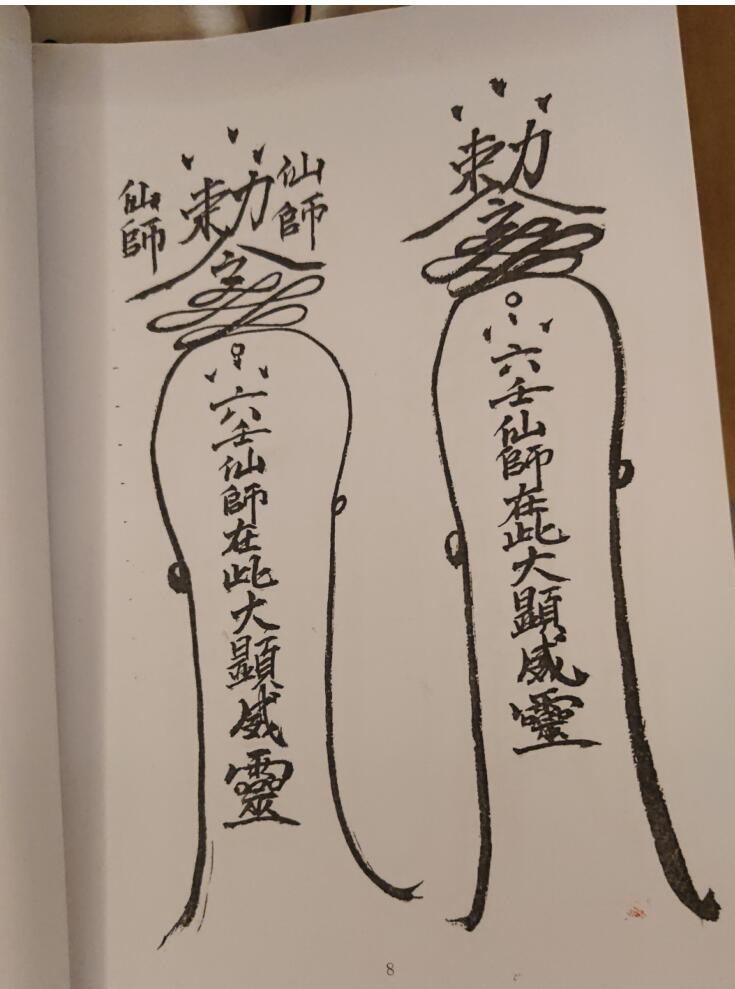 仙師
敕令
仙師
六壬仙師在此大顯威靈
敕令
六壬仙師在此大顯威靈
8